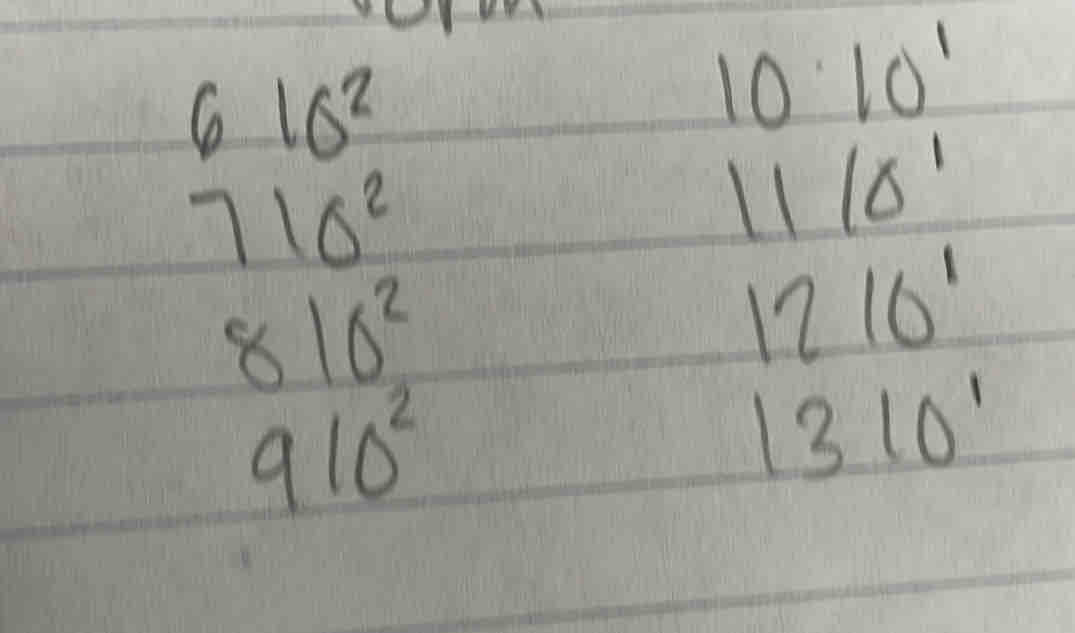 6 10² 10 · 10¹
7 10² 11 10¹
8 10² 12 10¹
9 10² 13 10¹